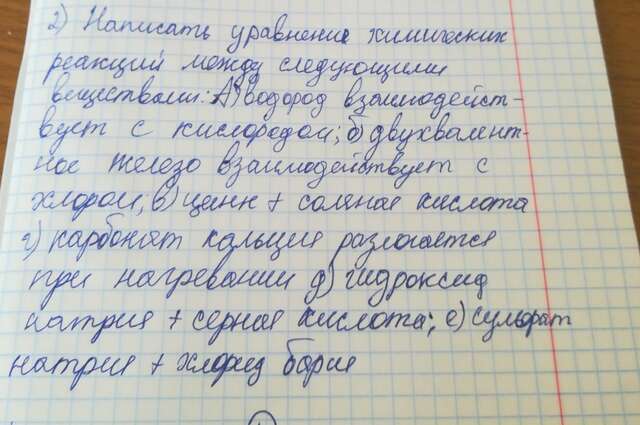 2) Написать уравнение химических
реакций между следующими
веществами: А) водород взаимодейст-
вует с кислородом; б) двухвалент-
ное железо взаимодействует с
хлором; в) цинк + соляная кислота
г) карбонат кальция разлагается
при нагревании д) гидроксид
натрия + серная кислота; е) сульфат
натрия + хлорид бария